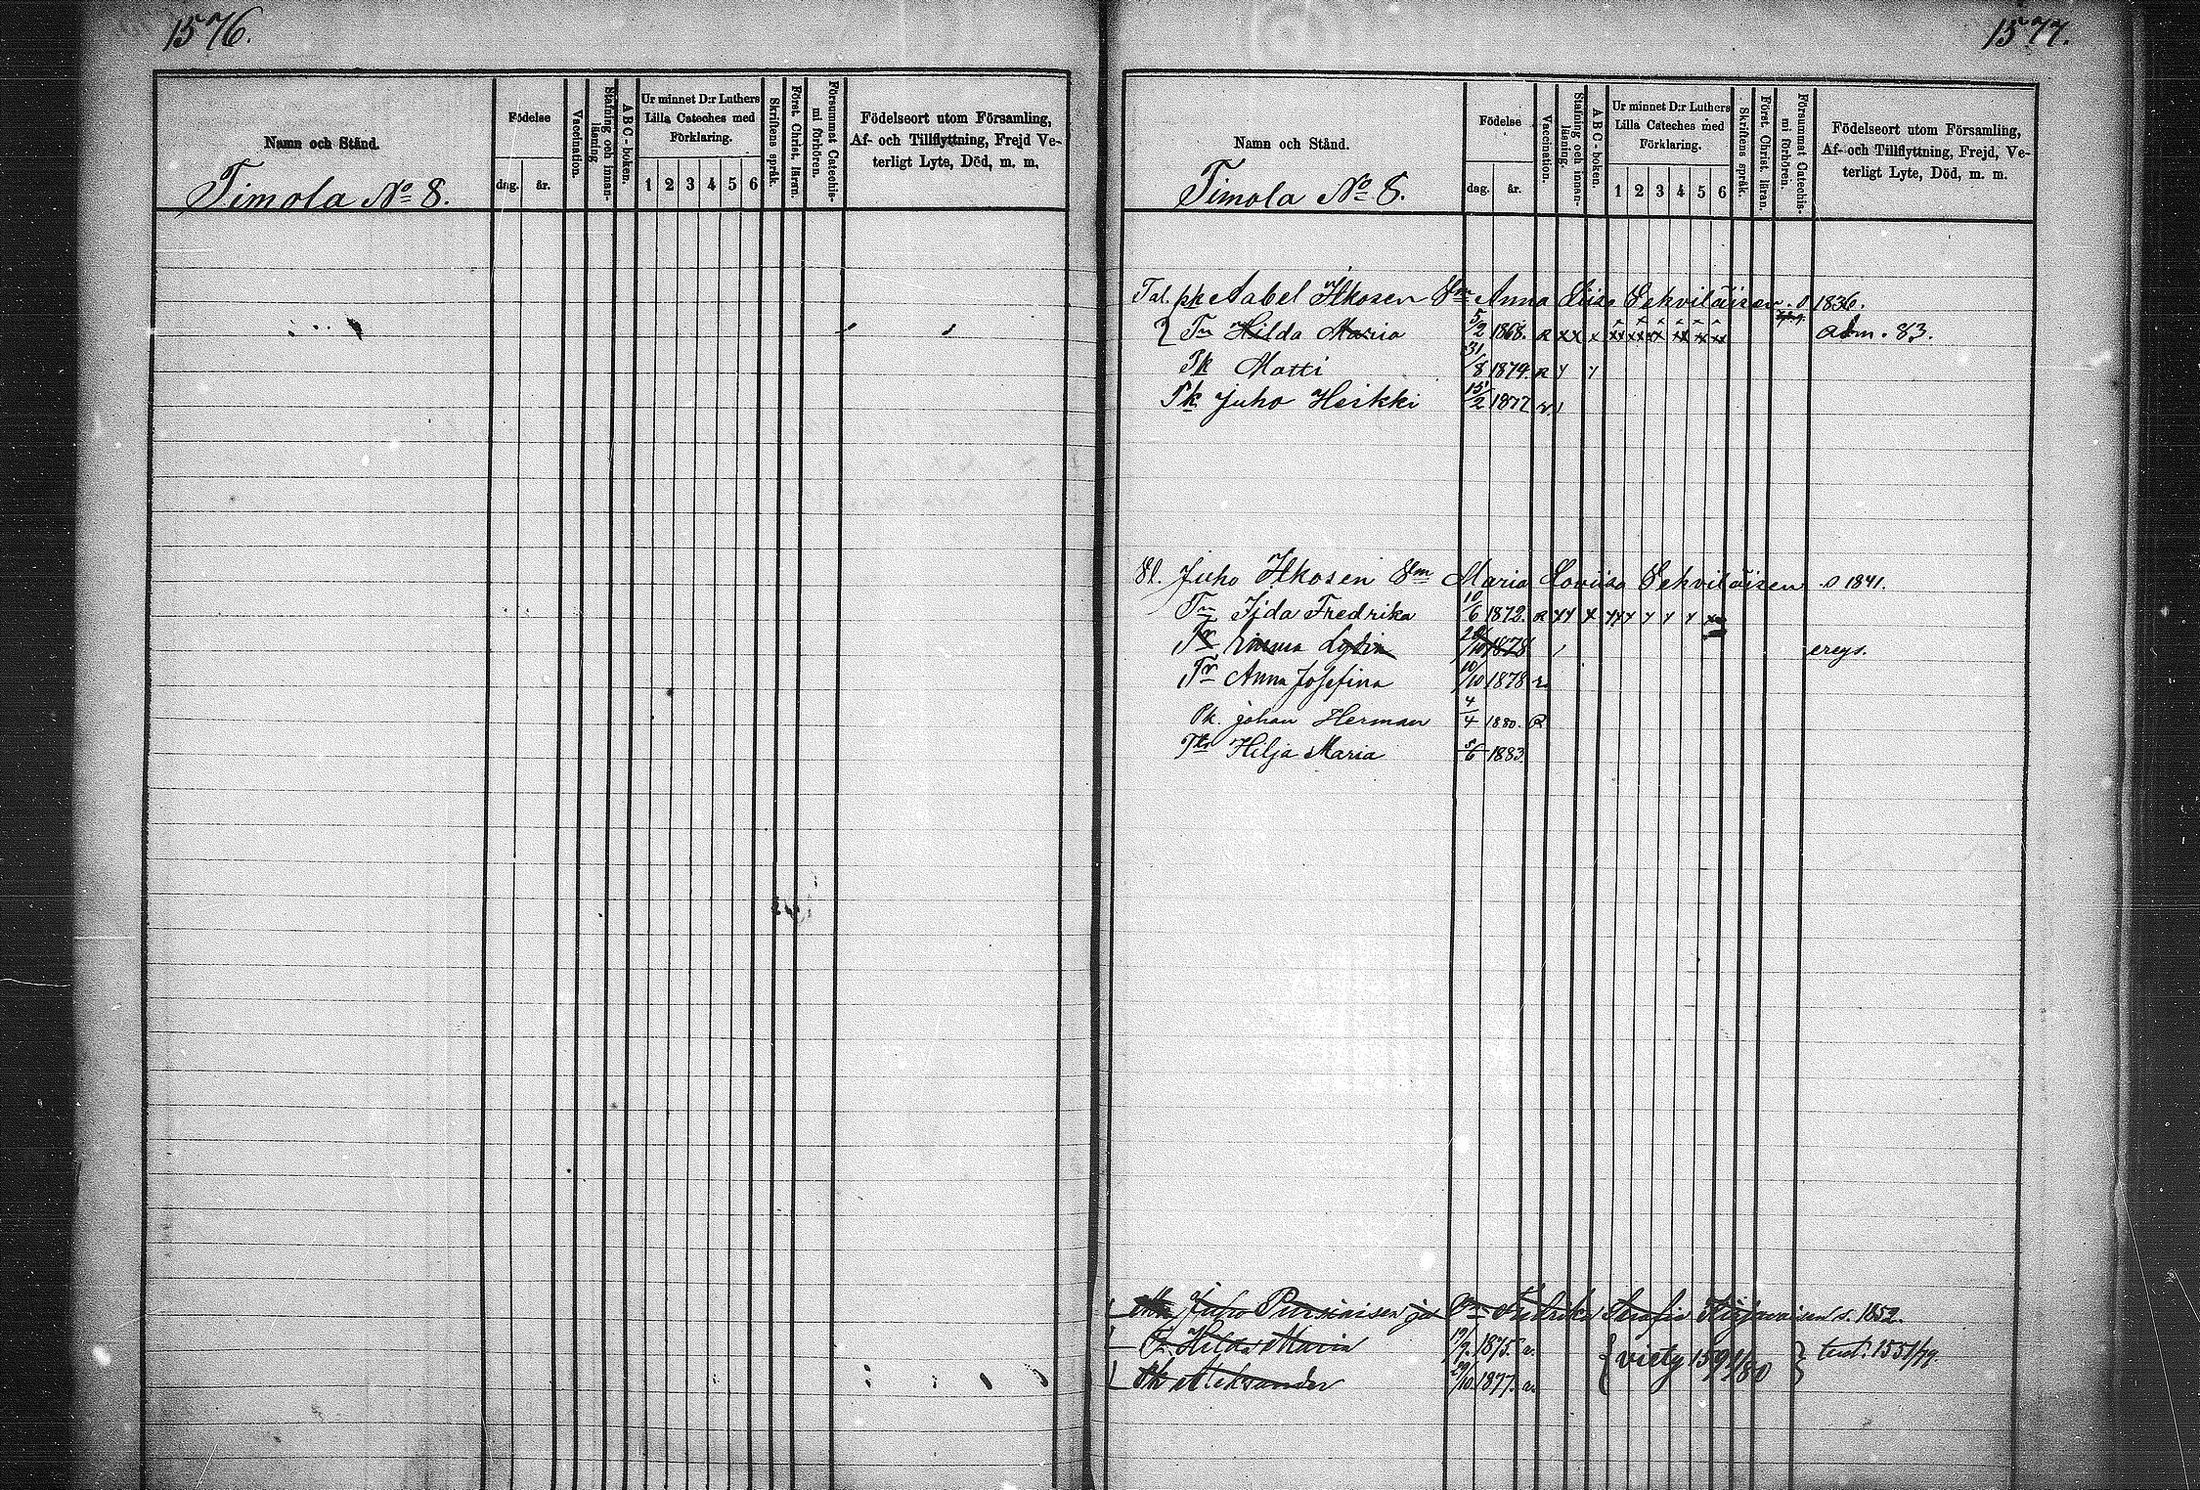 1576.
Namn och Stånd.
Timola No 8.
Födelse
dag. år.
Vaccination.
Stafning och innan-läsning
ABC-boken.
Ur minnet D:r Luthers
Lilla Cateches med
Förklaring.
1 2 3 4 5 6
Skriftens språk.
Först. Christ. läran.
Försummat Catechis-mi förhören.
Födelseort utom Församling,
Af- och Tillflyttning, Frejd Ve-
terligt Lyte, Död, m. m.
1577.
Namn och Stånd.
Timola No 8.
Födelse
dag. år.
Vaccination.
Stafning och innan-läsning.
ABC-boken.
Ur minnet D:r Luthers
Lilla Cateches med
Förklaring.
1 2 3 4 5 6
Skriftens språk.
Först. Christ. läran.
Försummat Catechis-mi förhören.
Födelseort utom Församling,
Af- och Tillflyttning, Frejd, Ve-
terligt Lyte, Död, m. m.
Tal. pk Aabel Ilkosen Vm Anna Liisa Lehviläisen 1836.
Tr Hilda Maria 5/2 1868. R xx x adm. 83.
Pk Matti 31/8 1879. R
Pk Juho Heikki 15/2 1877
Juho Ilkosen Vm Maria Loviisa Lehviläisen 1841.
Tr Iida Fredrika 10/6 1872. R
Tr Emma Lydia 1878
Tr Anna Josefina 10/10 1878
Pk. Johan Herman 4/4 1880. R
Hilja Maria 5/6 1883.
Juho Pursiaisen Vm Fredrika Serafia 1852.
Tr Hilda Maria 1875.
Pk Aleksander 1877.